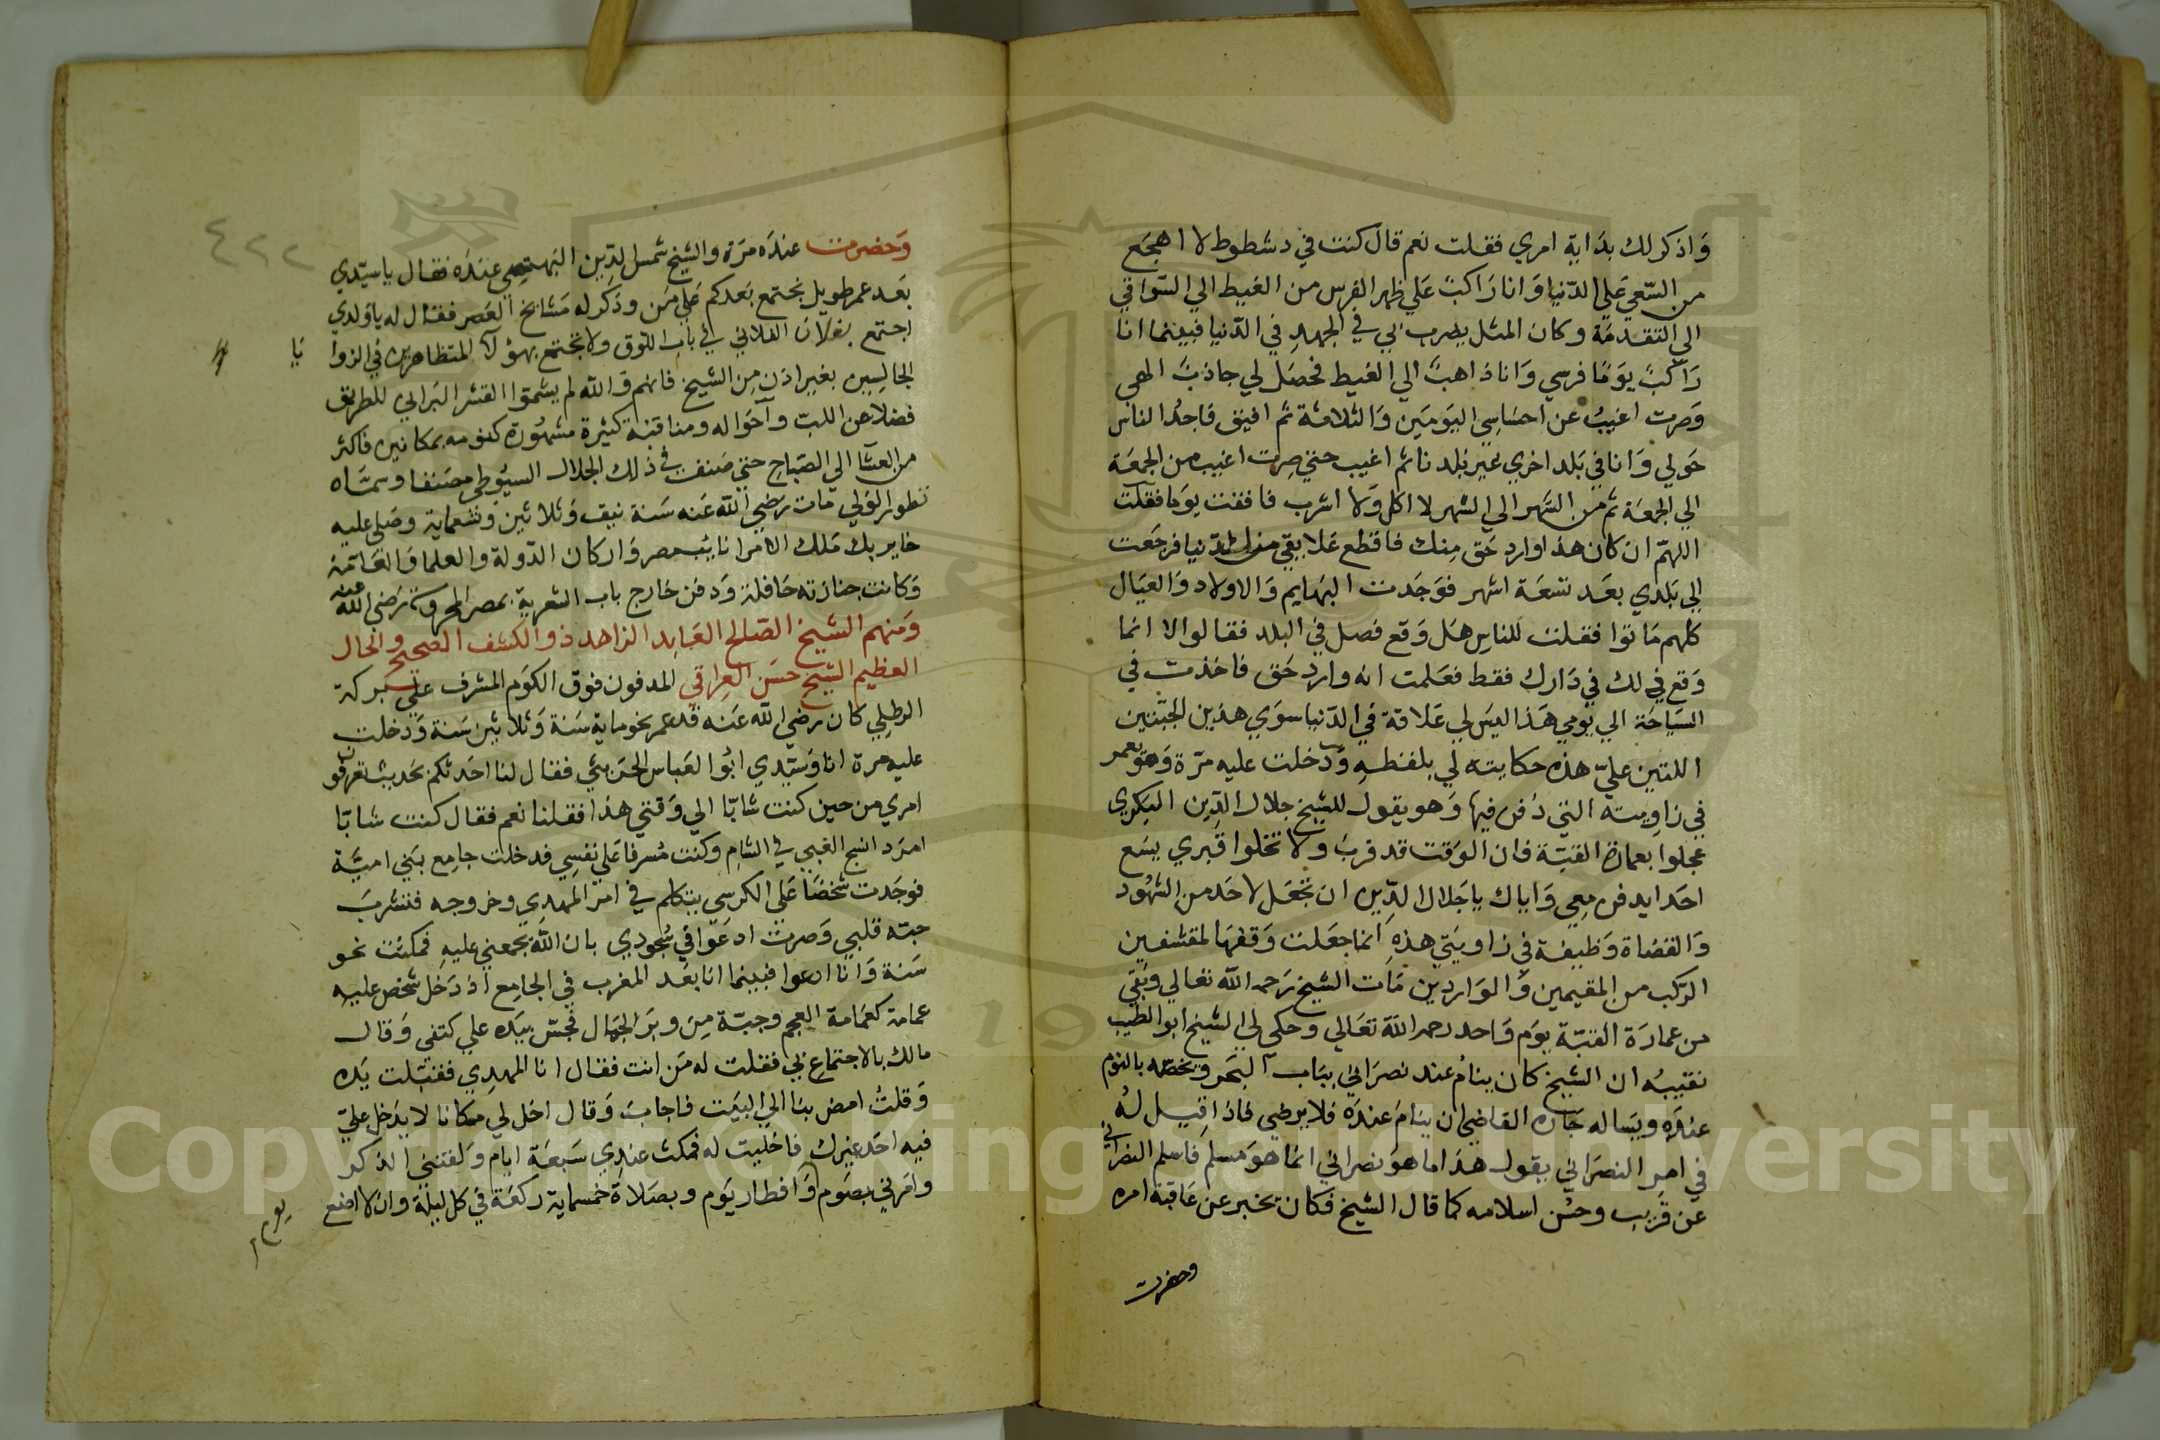 وَاذكر لك بدَاية امري فقلت نعم قال كنت في دشطوط لا اهجَع
من السّعي عَلي الدّنيا وَانا رَاكبٌ عَلي ظهر الفرس من الغيط الي السّواقي
الي التقدمَة وكان المثل يضرب بي في الجهد في الدّنيا فبينما انا
رَاكبٌ يوَمًا فرسي وَانا ذاهبٌ الي الغيط فحصَل لي جاذبٌ الهي
وَصرت اغيبُ عن احسَاسي اليَومَين وَالثلاثة ثم افيق فاجدُ الناس
حَولي وَانا في بَلد اخري غير بَلد نا ثم اغيب حتي صِرت اغيب من الجمعَة
الي الجمعَة ثم من الشهر الي الشهر لا اكل وَلا اشرب فافقت يوَما فقلت
اللهمّ ان كان هذا وارد حَق مِنك فاقطع عَلايقي من الدّنيا فرجَعت
الي بَلدي بعَد تسعَة اشهر فوَجَدت البَهايم وَالاولاد وَالعيَال
كلهم مَاتوا فقلت للناس هَل وَقع فصل في البلد فقالوا لا انما
وَقع ذلك في دَارك فقط فعَلمت انه وارد حَق فاخذت في
السيَاحَة الي يَومي هَذا ليسَ لي عَلاقة في الدّنيا سوَي هذين الجبّتين
اللتين عليّ هذه حكايته لي بلفظهِ وَدخلت عليه مرّة وَهو يعمر
في زاويته التي دُفن فيها وَهو يقول للشيخ جلال الدِّين البَكري
عجلوا بعمارة القبّة فان الوَقت قد قربُ ولا تخلوا قبري يسَع
احدا يدفن معِي وَاياك يا جَلال الدِّين ان تجعَل لاحَد من الشهُود
وَالقضاة وَظيفة في زاويَتي هذهِ انما جعَلت وَقفهَا لمقشفين
الرّكب من المقيمين وَالوَاردين مَات الشيخ رَحمه الله تعَالي وبَقي
من عمارَة القبّة يوَم وَاحد رحمه الله تعَالي وحكي لي الشيخ ابوالطيب
نقيبُه ان الشيخ كان ينامُ عند نصرَاني ببَاب البَحر ويخصّه بالنوم
عندَه ويسَاله جَاره القاضي ان ينامَ عندَه فلا يرضي فاذا قيل لهُ
في امر النصرَاني يقول هذا ما هوَ نصراني انما هوَ مسلم فاسلم النصراني
عن قريب وحسُن اسلامه كما قال الشيخ فكان يخبر عن عَاقبة امره
وحضرت
٤٢٢
وَحضرت عندَه مرّة والشيخ شمس الدِّين البَهتسي عندَه فقال يا سيّدي
بعَد عمر طويل نجتمع بعَدكم عَلي مَن وذكر له مَشايخ العَصر فقال له يا وَلدي
اجتمع بفلان الفلاني في باب اللوق ولا تجتمع بهؤلآ المتظاهرين في الزوا
يَا
الجالسِين بغير اذن مِن الشيخ فانهم وَالله لم يشمّوا القشر البَراني للطريق
فضلا عن اللبّ وَاحَواله ومناقبه كثيرة مشهُورَة كنومه بمكانين فاكثر
من العشا الي الصّبَاح حتي صَنف في ذلك الجلال السيُوطي مصَنفا وسمّاه
تطور الوَلي مات رَضي الله عَنه سَنة نيف وَثلاثين وتسَعماية وصَلي عليه
خاير بك مَلك الامرا نايب مصر وَاركان الدّولة والعلما وَالعَامّة
وَكانت جنازته حَافلة وَدفن خارج باب الشعرية بمصر المحروسة رَضي الله عنه
وَمنهم الشيخ الصّالح العَابد الزاهد ذو الكشف الصحيح والحال
العظيم الشيخ حسَن العِراقي المدفون فوق الكوَم المشرف علي بركة
الرطلي كان رضي الله عَنه قد عمر نحو ماية سَنة وَثلاثين سَنة وَدخلت
عليه مرة انا وَسَيّدي ابوُ العَباس الحرَيثي فقال لنا احَدثكم بحَديث تعرفون
امري من حين كنت شابّا الي وَقتي هذا فقلنا نعم فقال كنت شابّا
امرَد انسج الغبي في الشام وكنت مُسرفا عَلي نفسِي فدخلت جامِع بَني اميّة
فوجَدت شخصَا عَلي الكرسي يتكلم في امر المهدِي وخروجه فتشربَ
حبّه قلبي وَصرتُ ادعَوا في سُجودي بان الله يجمعني عليهِ فمكثت نحو
سَنة وَانا ادعوا فبينما انا بعَد المغرب في الجامِع اذ دَخل شخص عليهِ
عمامَة كعَمامَة العجم وجبّة مِن وبَر الجمال فجسّ بيَده علي كتفي وَقال
مالك بالاجتماع بي فقلت له مَن انت فقال انا المهدي فقبّلت يَده
وَقلتُ امض بنا الي البيَت فاجابَ وَقال اخل لي مكانا لا يدَخل عليّ
فيه احَد غيرك فاخليت له فمكث عندي سَبعَة ايام وَلقنني الذكر
وامَرني بصَوم يَوم وَافطار يَوم وبصَلاة خمسماية ركعَة في كل ليلَة وان لا اضع